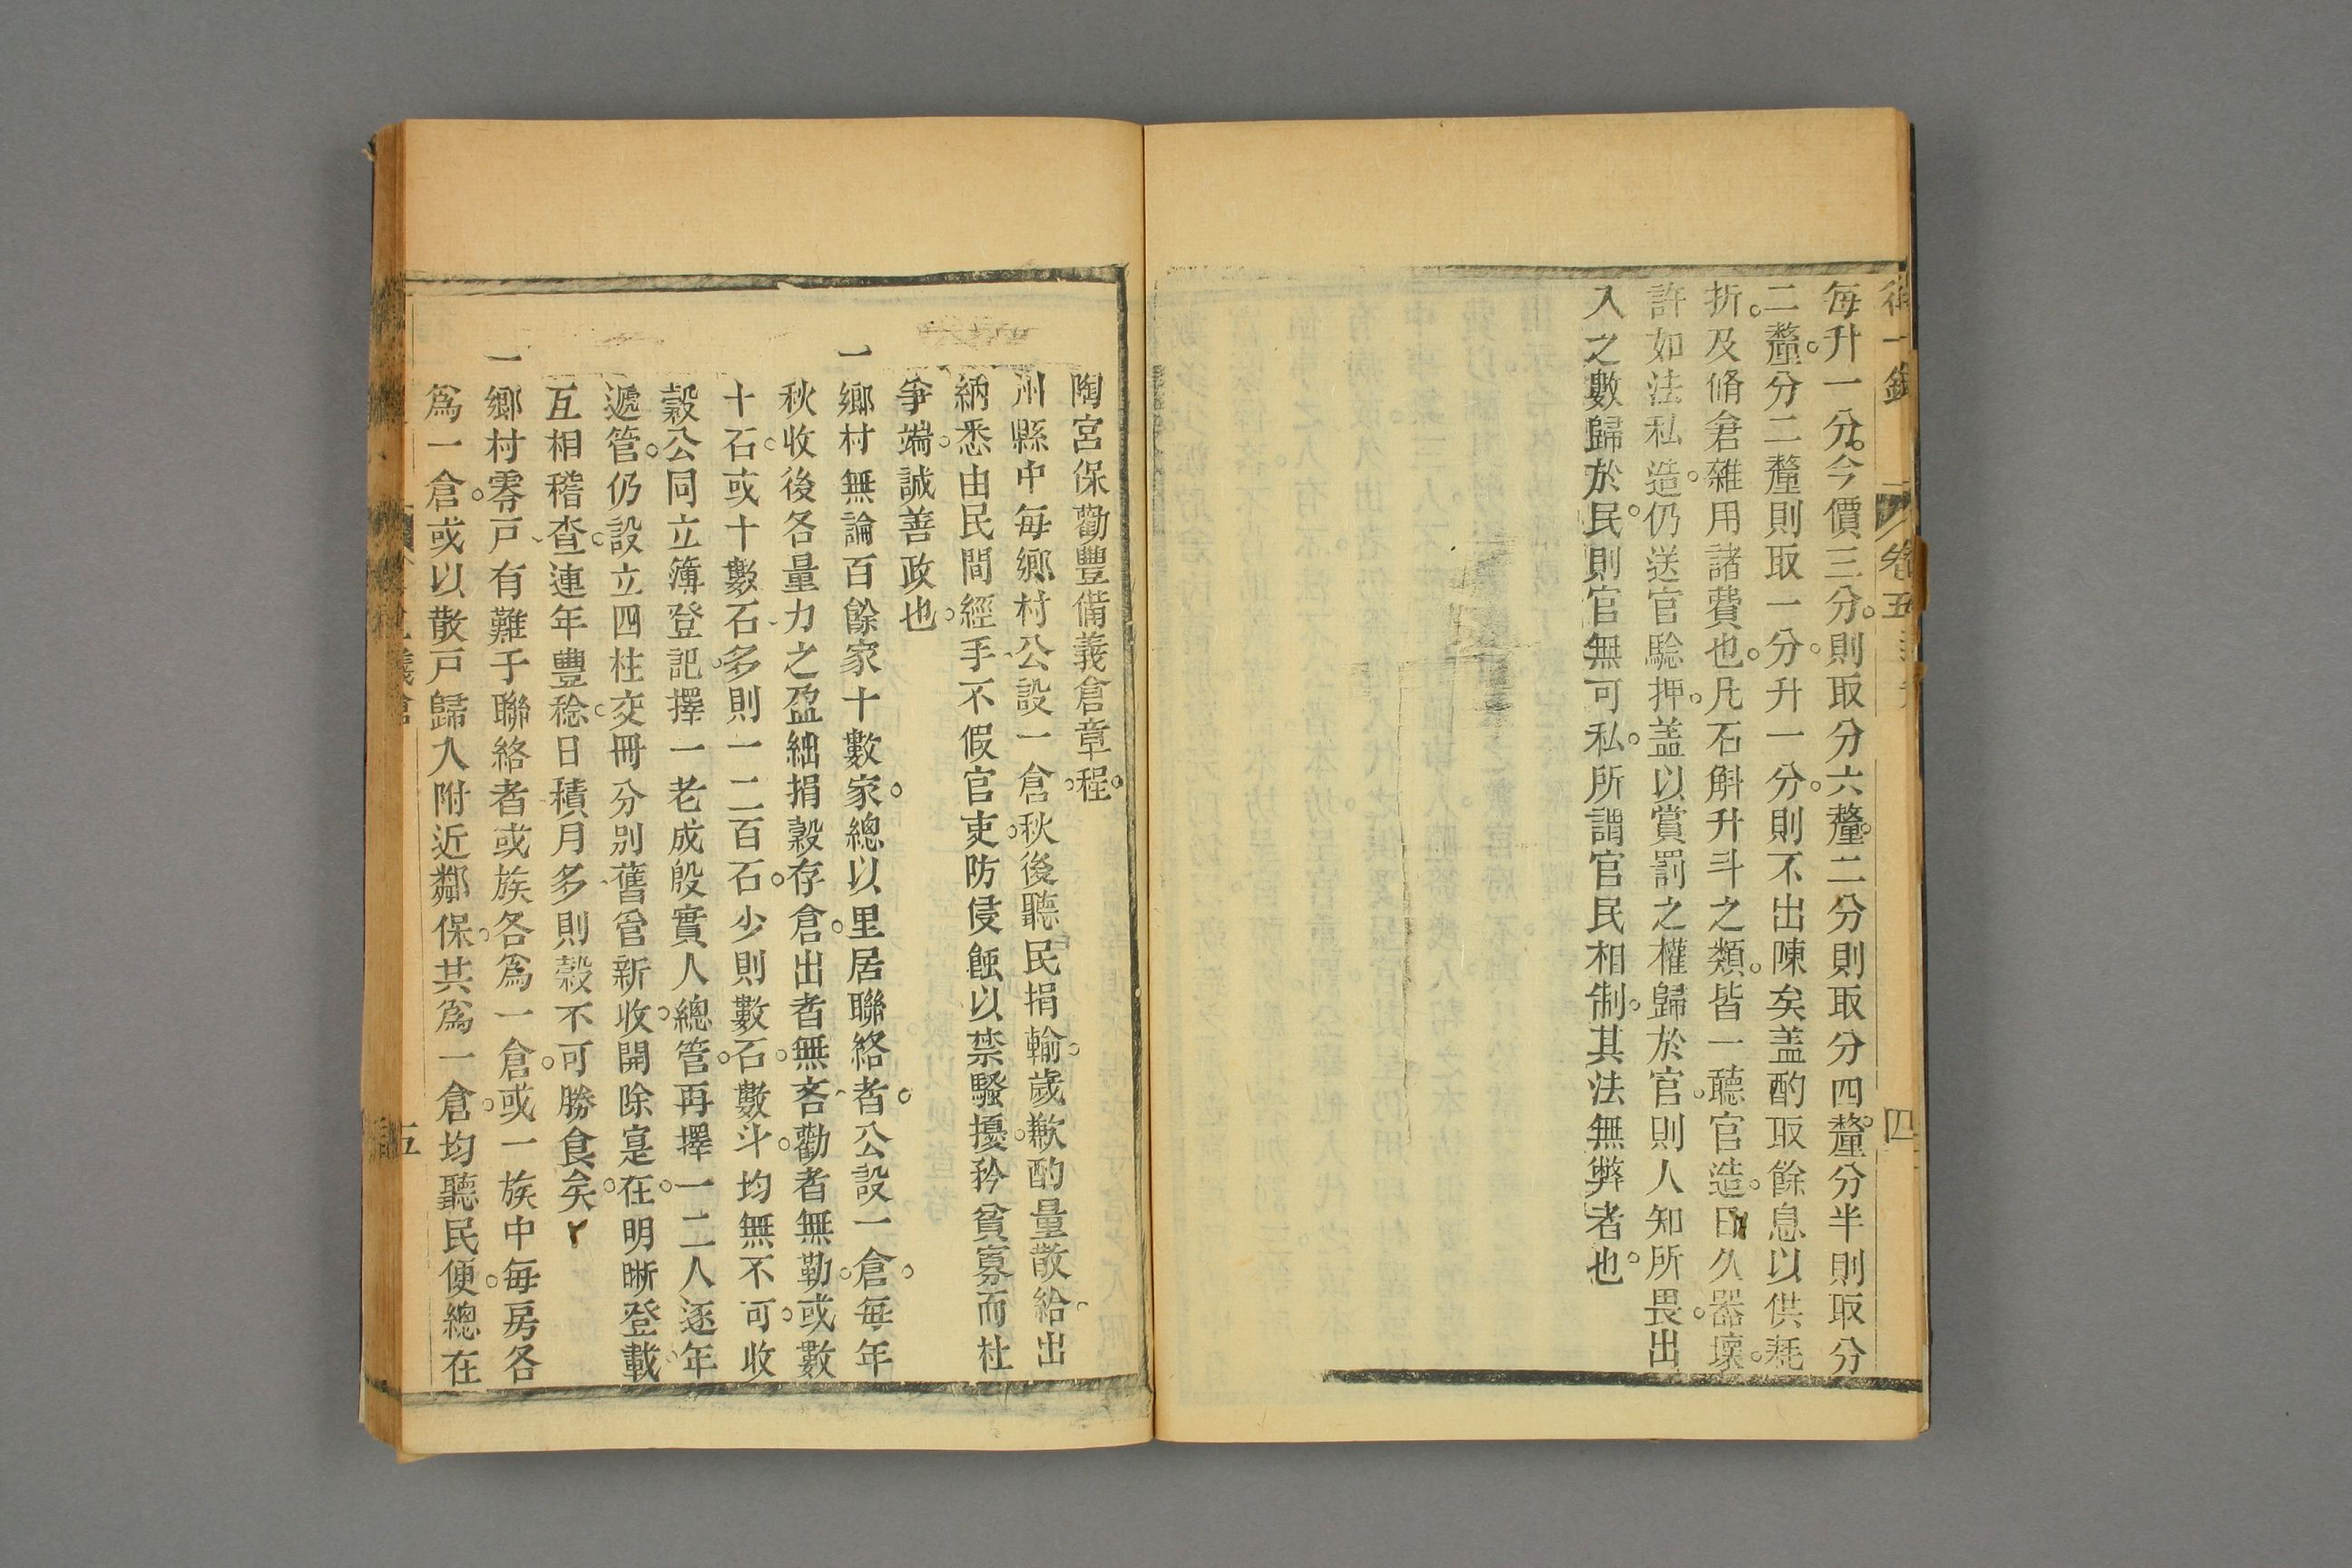 每升一分。今價三分。則取分六釐。二分則取分四釐。分半則取分
二釐。分二釐則取一分。升一分。則不出陳矣盖酌取餘息以供耗
折。及脩倉雜用諸費也。凡石斛升斗之類。皆一聽官造。日久器壞。
許如法私造。仍送官驗押。盖以賞罰之權歸於官。則人知所畏。出
入之數歸於民。則官無可私。所謂官民相制。其法無弊者也。
卷五
四
陶宮保勸豐備義倉章程。
州縣中每鄉村公設一倉。秋後聽民捐輸。歲歉酌量散給。出
納悉由民間經手、不假官吏。防侵蝕以禁騷擾。矜貧寡而杜
爭端。誠善政也。
一鄉村無論百餘家十數家。總以里居聯絡者。公設一倉。每年
秋收後各量力之盈絀捐穀存倉。出者無吝、勸者無勒。或數
十石。或十數石、多則一二百石。少則數石。數斗。均無不可。收
穀公同立簿登記。擇一老成殷實人總管。再擇一二人逐年
遞管。仍設立四柱交冊分别舊管新收。開除寔在。明晰登載。
互相稽查。連年豐稔。日積月多、則穀不可勝食矣。
一鄉村零戸、有難于聯絡者或族各爲一倉。或一族中每房各
爲一倉。或以散戸歸入附近鄰保。共爲一倉。均聽民便。總在
五